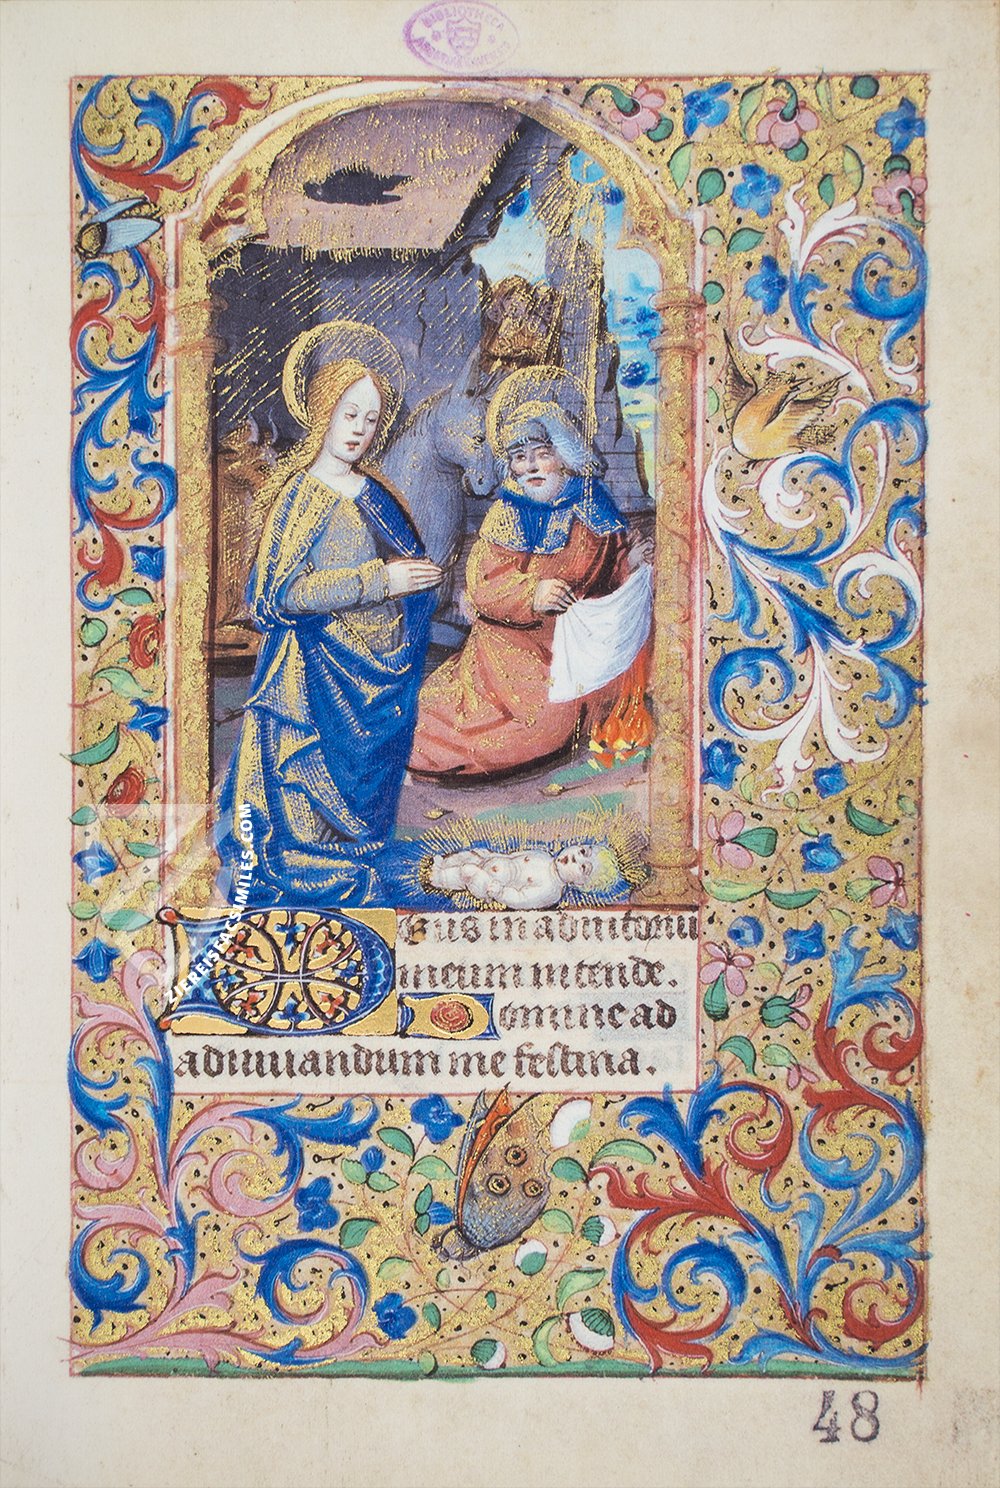 BIBLIOTHECA
Deus in adiutoriu
meum intende.
Domine ad
adiuuandum me festina.
ZIEREISFACSIMILES.COM
48